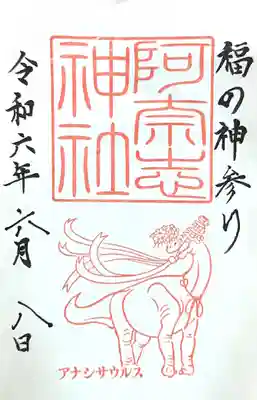 福の神参り
阿宗志
神社
令和六年六月八日
アナシサウルス